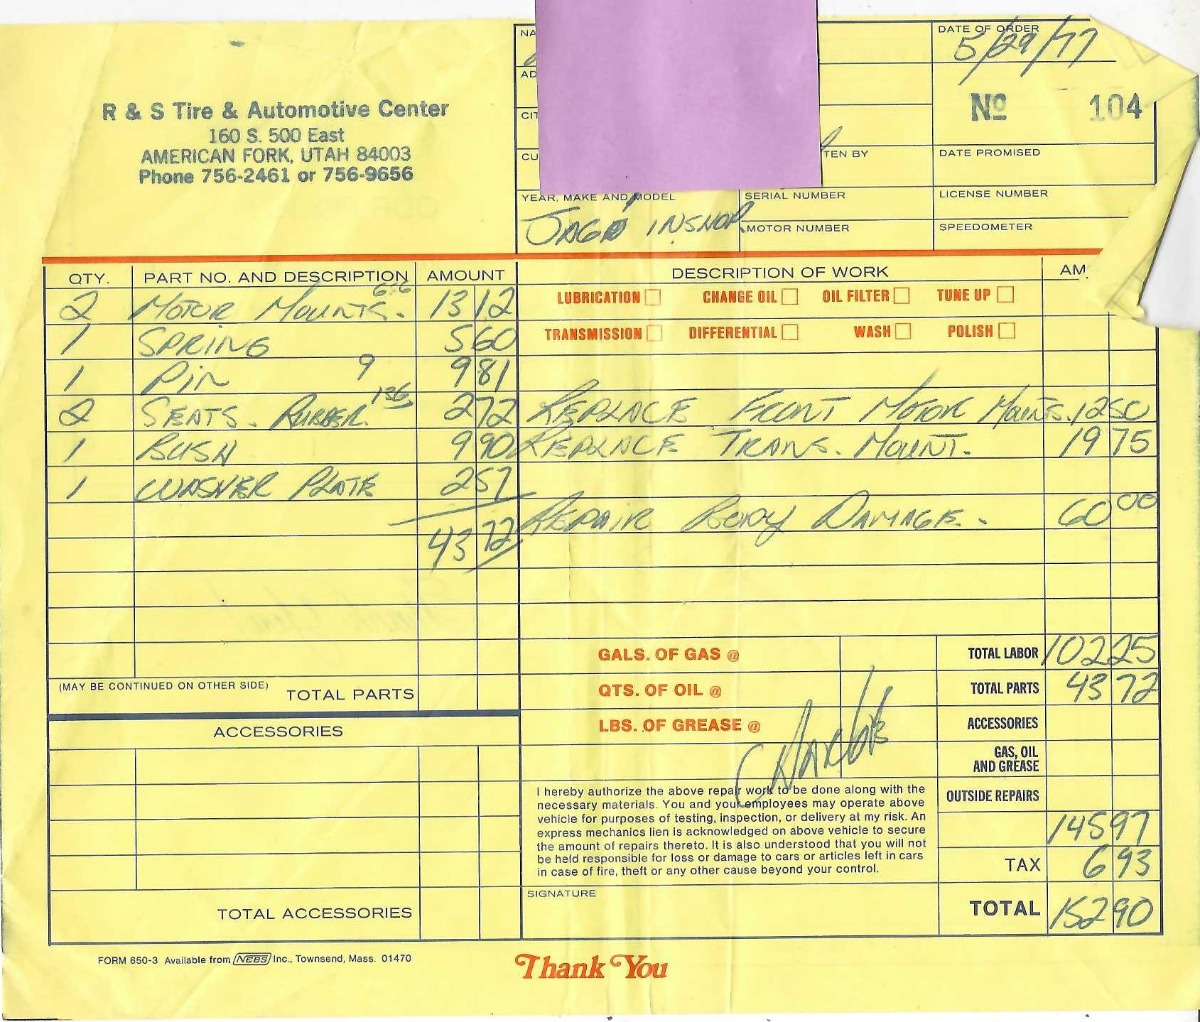 NA
DATE OF ORDER
5/29/77
AD
R & S Tire & Automotive Center
160 S. 500 East
AMERICAN FORK, UTAH 84003
Phone 756-2461 or 756-9656
CIT
No 104
CU
TEN BY
DATE PROMISED
YEAR, MAKE AND MODEL
SERIAL NUMBER
LICENSE NUMBER
MOTOR NUMBER
SPEEDOMETER
QTY. PART NO. AND DESCRIPTION AMOUNT
DESCRIPTION OF WORK AM
2 MOTOR MOUNTS. 6.56 13 12
LUBRICATION CHANGE OIL OIL FILTER TUNE UP
1 SPRING 5 60
TRANSMISSION DIFFERENTIAL WASH POLISH
1 PIN 9 9 81
2 SEATS. RUBBER. 136 2 72
REPLACE FRONT MOTOR MOUNTS. 12 50
1 BUSH 9 90
REPLACE TRANS. MOUNT. 19 75
1 WASHER PLATE 2 57
REPAIR BODY DAMAGE. 60 00
43 72
GALS. OF GAS @
TOTAL LABOR 102 25
(MAY BE CONTINUED ON OTHER SIDE) TOTAL PARTS
QTS. OF OIL @
TOTAL PARTS 43 72
ACCESSORIES
LBS. OF GREASE @
ACCESSORIES
GAS, OIL
AND GREASE
I hereby authorize the above repair work to be done along with the
necessary materials. You and your employees may operate above
vehicle for purposes of testing, inspection, or delivery at my risk. An
express mechanics lien is acknowledged on above vehicle to secure
the amount of repairs thereto. It is also understood that you will not
be held responsible for loss or damage to cars or articles left in cars
in case of fire, theft or any other cause beyond your control.
OUTSIDE REPAIRS
145 97
TAX 6 93
SIGNATURE
TOTAL ACCESSORIES
TOTAL 152 90
FORM 650-3 Available from NEBS Inc., Townsend, Mass. 01470
Thank You